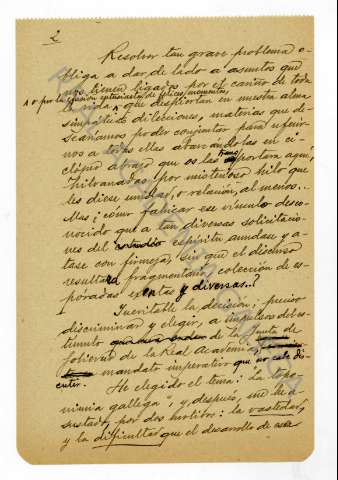 2
Resolver tan grave problema o-
bliga a dar de lado a asuntos que
nos tienen ligados por el cariño de toda
o por la efusión entusiasta de felices momentos,
la vida que despiertan en nuestra alma
simpáticas dilecciones, materias que de-
seáramos poder conjuntar para referir-
nos a todas ellas abarcándolas en ci-
clópeo abrazo que os las transportara aquí,
hilvanadas por misterioso hilo que
les diese unidad, o relación, al menos...
Mas ¿cómo fabricar ese vínculo desco-
nocido que a tan diversas solicitacio-
nes del espíritu anudase y a-
tase con firmeza, sin que el discurso
resultara fragmentaria colección de es-
póradas y diversas..?
Inevitable la decisión; preciso
discriminar y elegir, a impulsos del es-
tímulo de la Junta de
Gobierno de la Real Academia,
mandato imperativo que no cabe dis-
cutir.
He elegido el tema: "La topo-
nimia gallega", y, después, me he a-
sustado, por dos motivos: la vastedad,
y la dificultad que el desarrollo de este